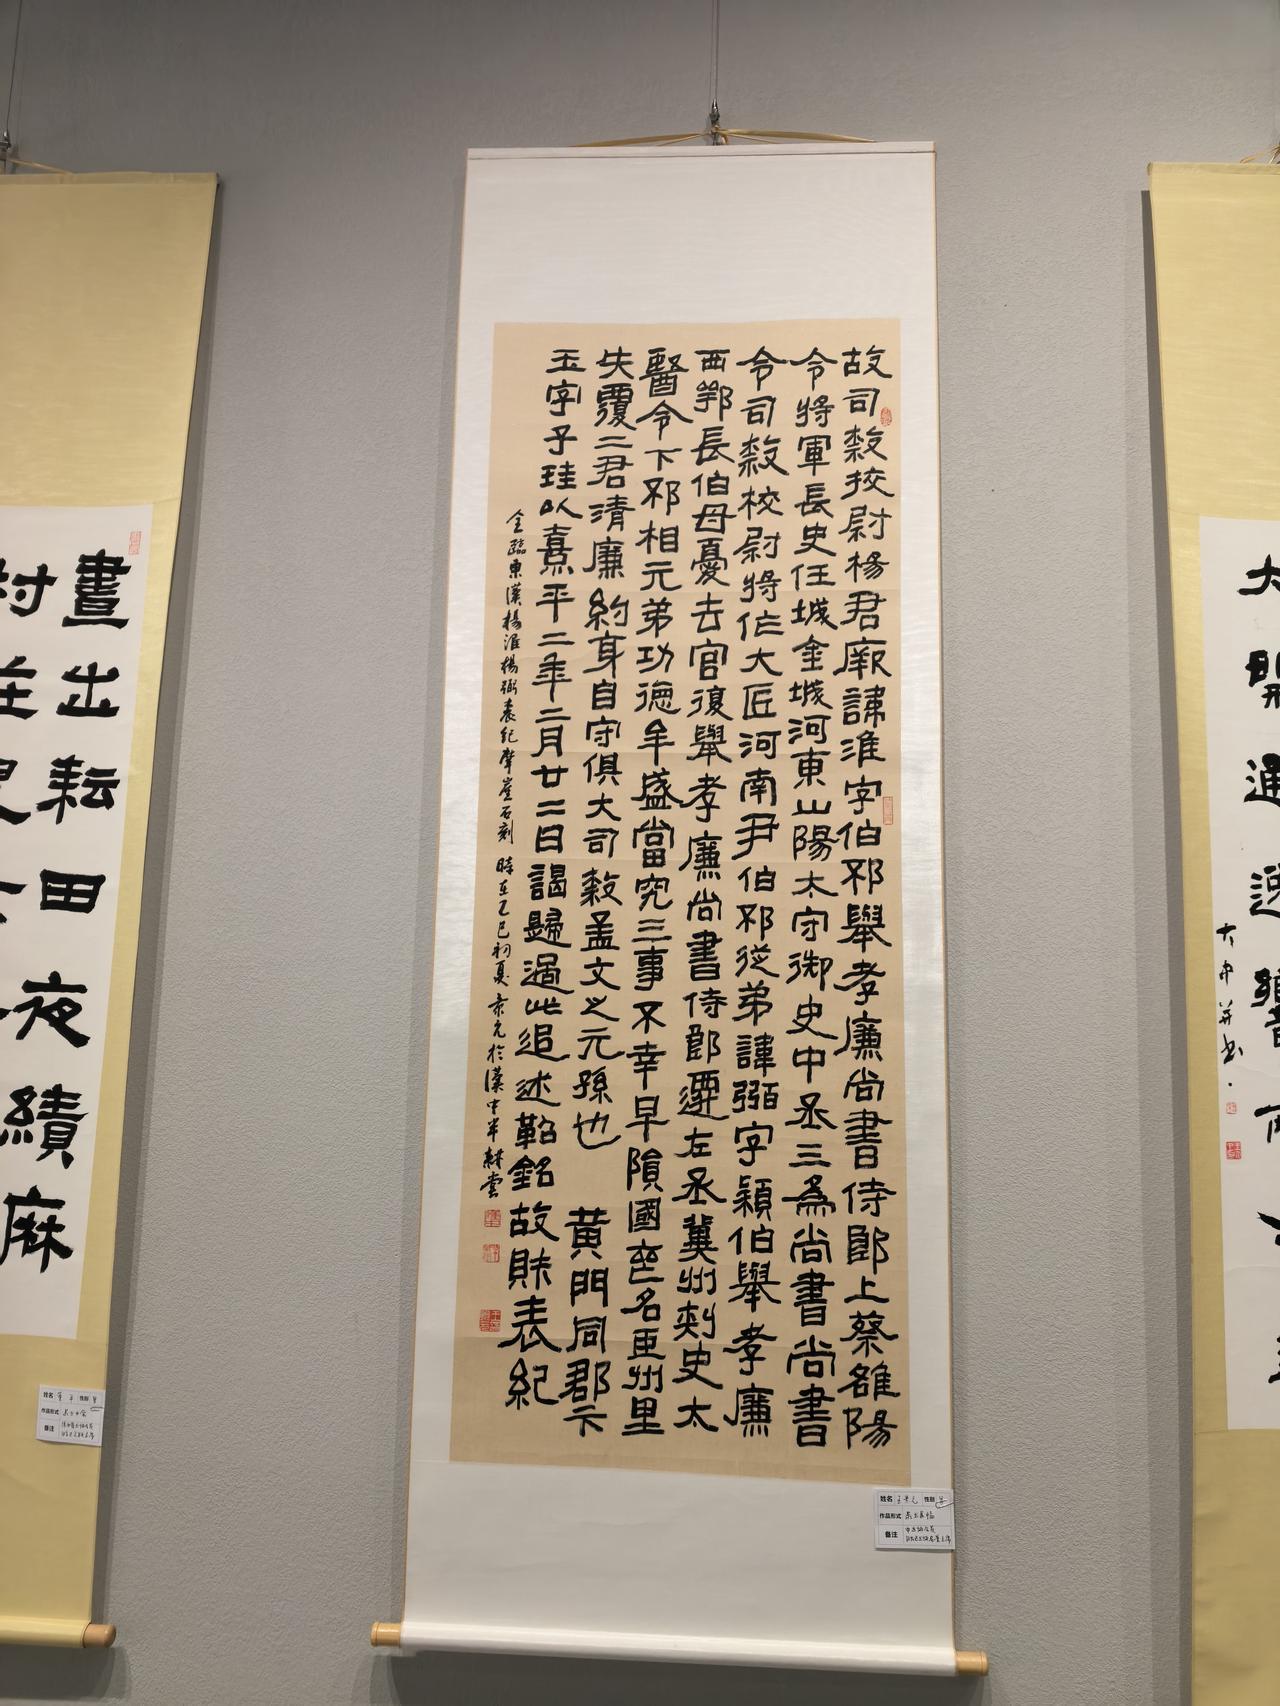 故司隸挍尉楊君厥諱淮字伯邳舉孝廉尚書侍郎上蔡雒陽
令將軍長史任城金城河東山陽太守御史中丞三為尚書尚書
令司隸校尉將作大匠河南尹伯邳從弟諱弼字穎伯舉孝廉
西鄂長伯母憂去官復舉孝廉尚書侍郎遷左丞冀州刺史太
醫令下邳相元弟功德牟盛當究三事不幸早隕國喪名臣州里
失覆二君清廉約身自守俱大司隸孟文之元孫也 黃門同郡卞
玉字子珪以熹平二年二月廿二日謁歸過此追述勒銘故財表紀
全臨東漢楊淮楊弼表紀摩崖石刻 時在乙巳初夏 景元於漢中半耕堂
晝出耘田夜績麻
村莊
大開通
姓名 性別
作品形式
备注
姓名 性別
作品形式
备注